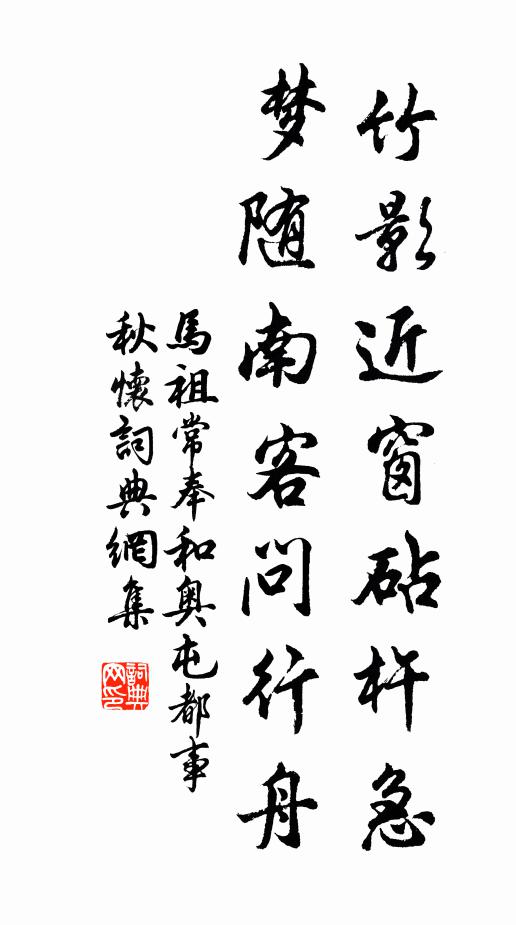 竹影近窗砧杵急
梦随南客问行舟
馬祖常奉和奥屯都事
秋懷詞典網集
詞典網印